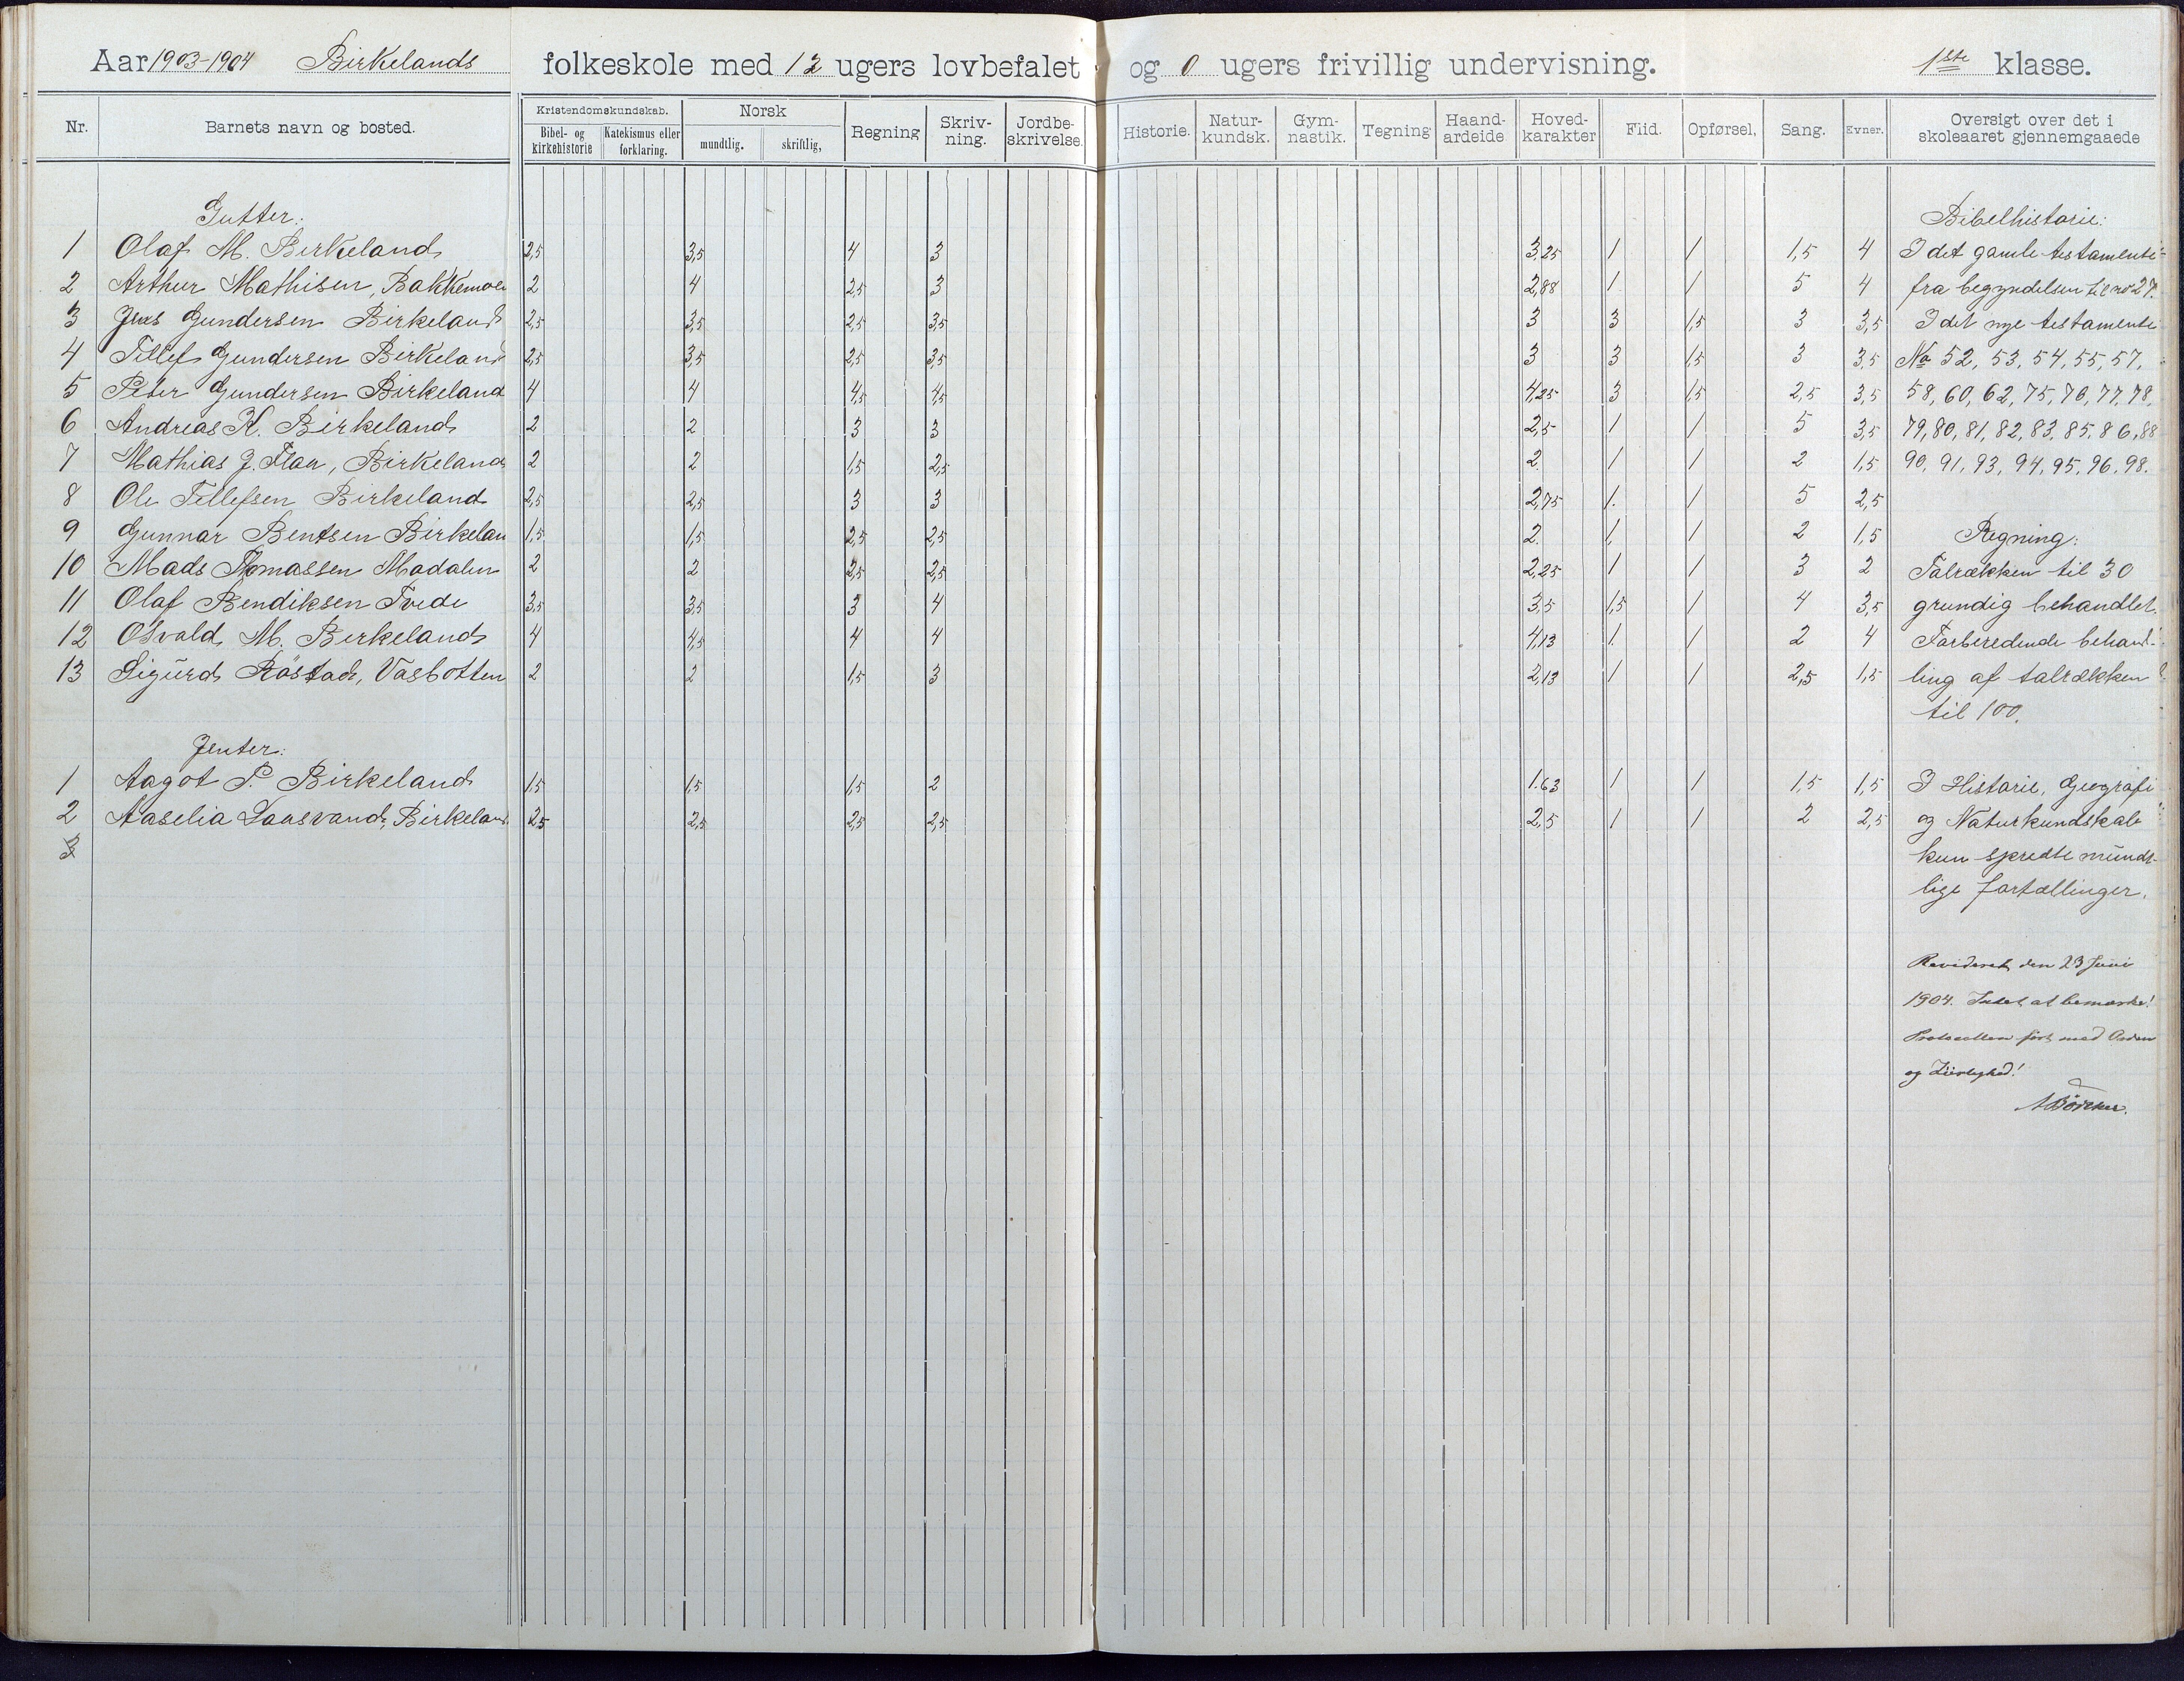 Aar 1903-1904 Birkelands folkeskole med 12 ugers lovbefalet og 0 ugers frivillig undervisning. 1ste klasse.
Nr. Barnets navn og bosted. Kristendomskundskab. Bibel- og kirkehistorie Katekismus eller forklaring. Norsk mundtlig. skriftlig, Regning Skriv-ning. Jordbe-skrivelse. Historie. Natur-kundsk. Gym-nastik. Tegning Haand-ardeide Hoved-karakter Flid. Opførsel, Sang. Evner. Oversigt over det i skoleaaret gjennemgaaede
Gutter: Bibelhistorie:
1 Olaf M. Birkeland 2,5 3,5 4 3 3,25 1 1 1,5 4 I det gamle testamente
2 Arthur Mathisen, Bakkemoen 2 4 2,5 3 2,88 1 1 5 4 fra begyndelsen til no 27.
3 Jens Gundersen Birkeland 2,5 3,5 2,5 3,5 3 3 1,5 3 3,5 I det nye testamente
4 Tellef Gundersen Birkeland 2,5 3,5 2,5 3,5 3 3 1,5 3 3,5 No 52, 53, 54, 55, 57,
5 Peter Gundersen Birkeland 4 4 4,5 4,5 4,25 3 1,5 2,5 3,5 58, 60, 62, 75, 76, 77, 78,
6 Andreas K. Birkeland 2 2 3 3 2,5 1 1 5 3,5 79, 80, 81, 82, 83, 85, 86, 88
7 Mathias J. Flaa, Birkeland 2 2 1,5 2,5 2. 1 1 2 1,5 90, 91, 93, 94, 95, 96, 98.
8 Ole Tellefsen Birkeland 2,5 2,5 3 3 2,75 1. 1 5 2,5
9 Gunnar Bentsen Birkelan 1,5 1,5 2,5 2,5 2. 1, 1 2 1,5 Regning:
10 Mads Thomassen Modalen 2 2 2,5 2,5 2,25 1 1 3 2 Talrækken til 30
11 Olaf Bendiksen Tvede 3,5 3,5 3 4 3,5 1,5 1 4 3,5 grundig behandlet.
12 Osvald M. Birkeland 4 4,5 4 4 4,13 1. 1 2 4 Forberedende behand-
13 Sigurd Röstad, Vasbotten 2 2 1,5 3 2,13 1 1 2,5 1,5 ling af talrækken
til 100.
Jenter:
1 Aagot P. Birkeland 1,5 1,5 1,5 2 1.63 1 1 1,5 1,5 I Historie, Geografi
2 Aaselia Laasvand, Birkeland 2,5 2,5 2,5 2,5 2,5 1 1 2 2,5 og Naturkundskab
3 kun spredte mundt-
lige fortællinger.
Revideret den 23 Juni
1904. Intet at bemærke!
Protocollen ført med Orden
og Zirlighed!